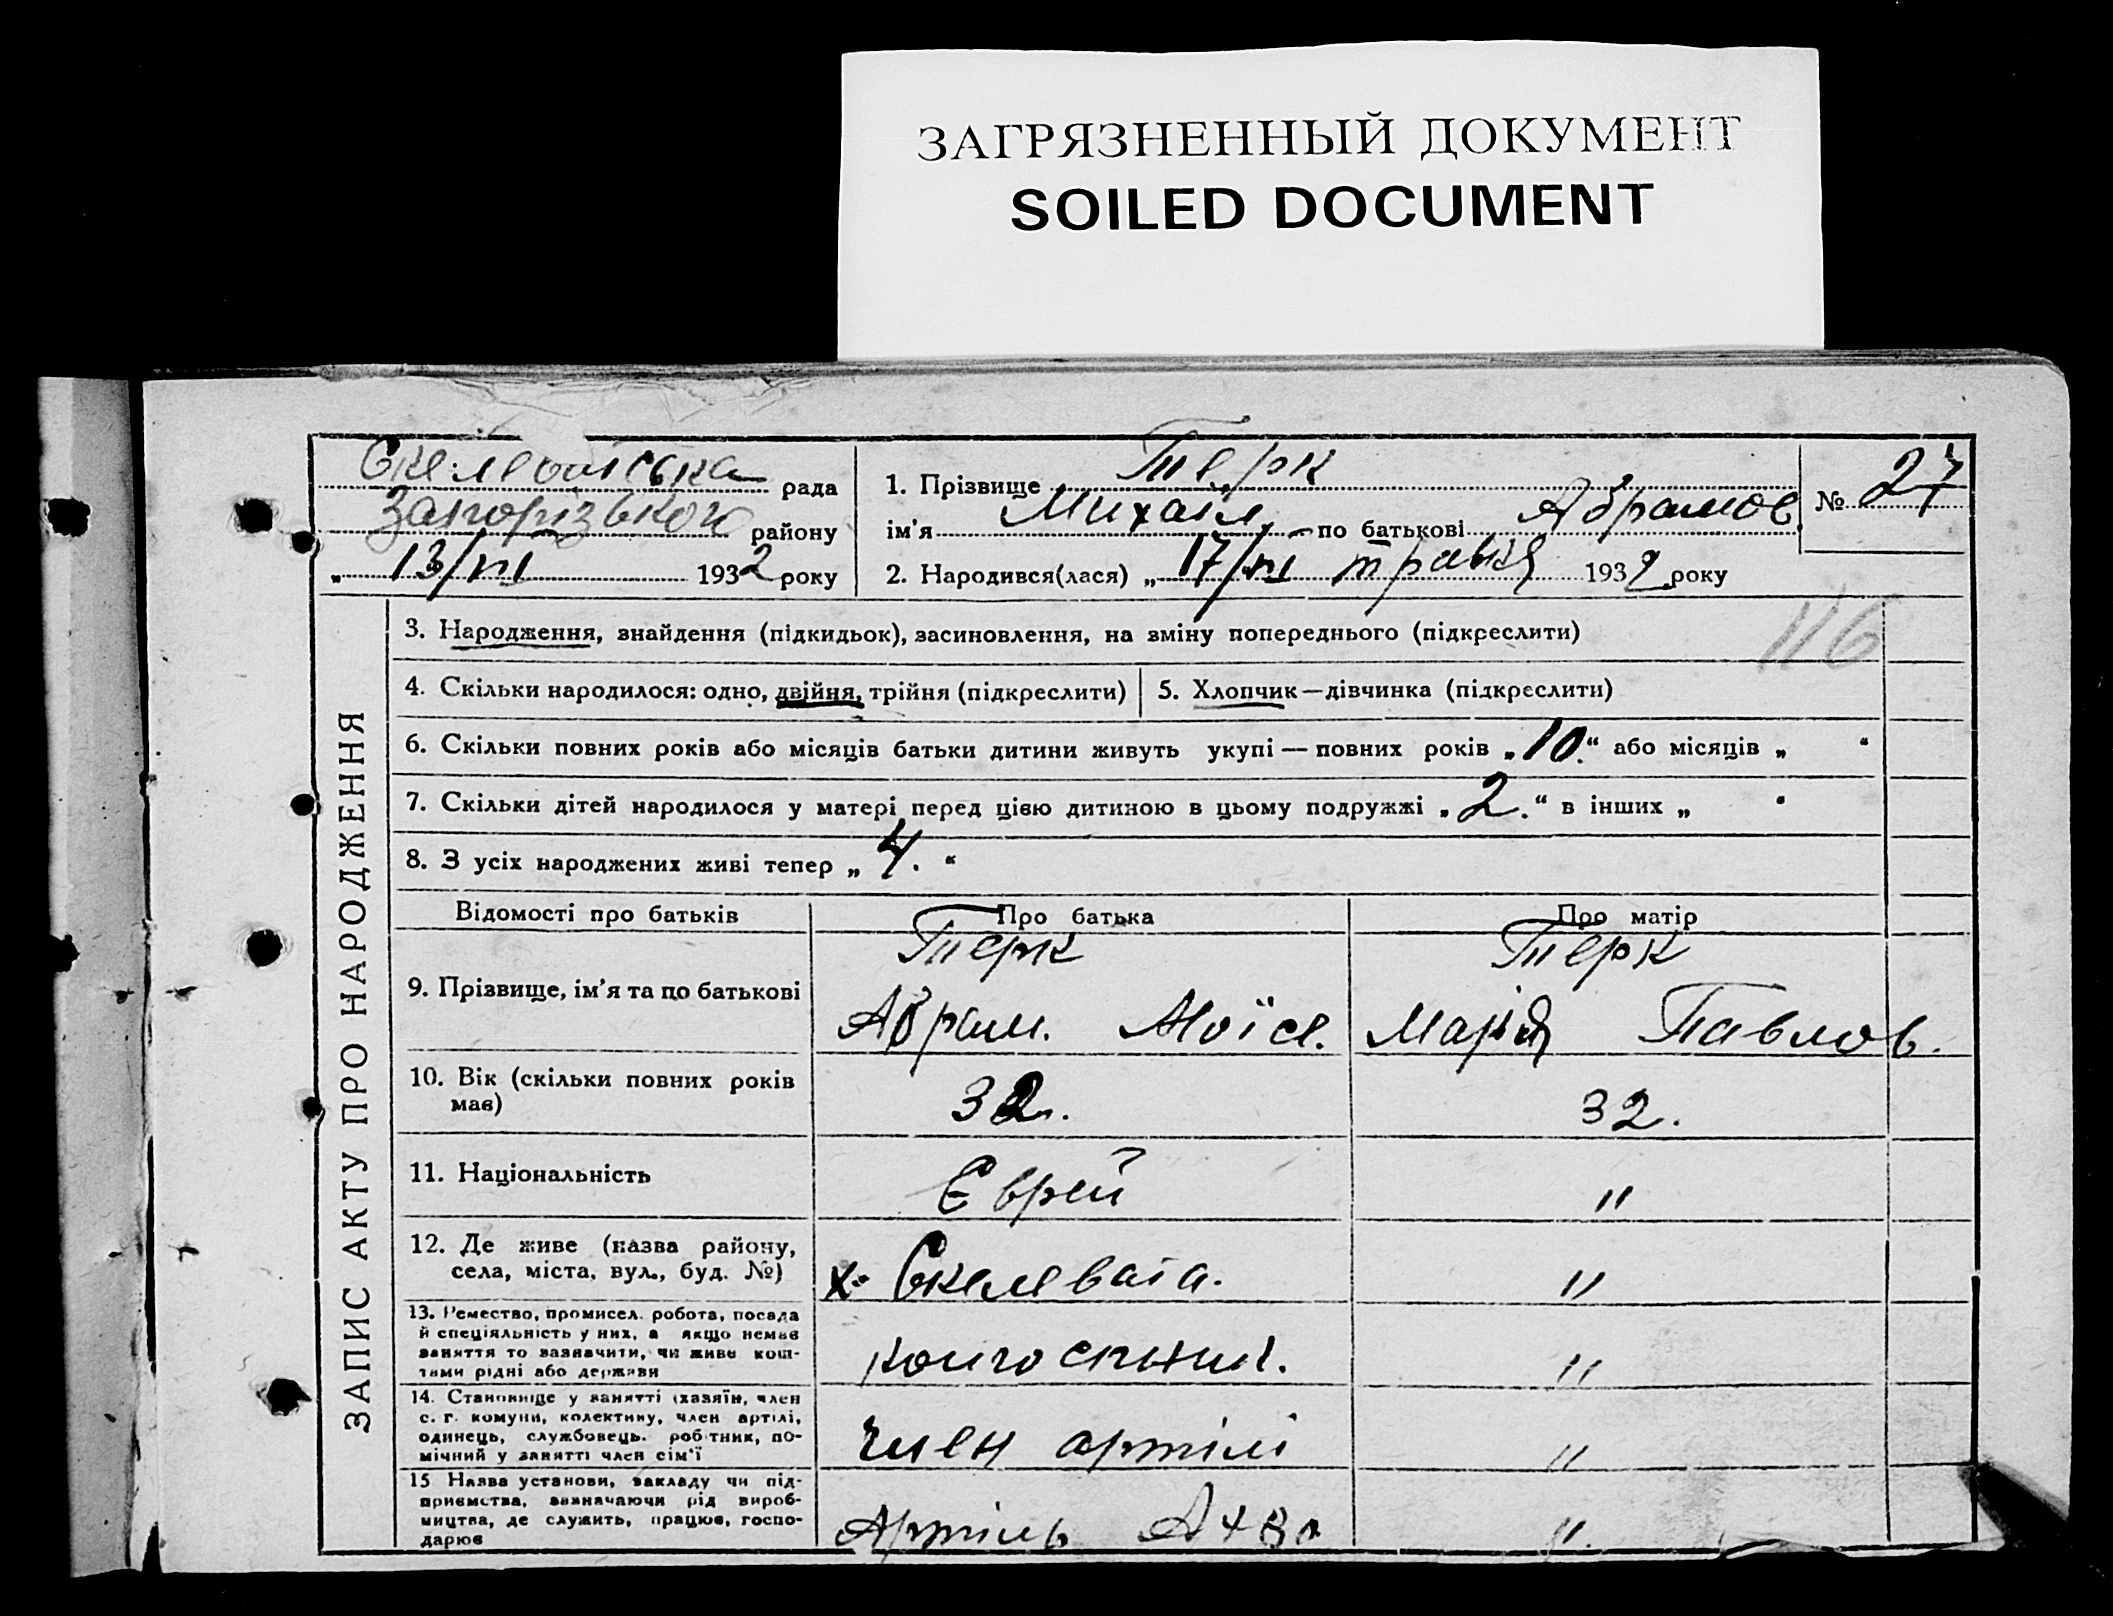 ЗАГРЯЗНЕННЫЙ ДОКУМЕНТ
SOILED DOCUMENT
Скелеватська рада
Запорізького району
„ 13/VI 1932 року
1. Прізвище Терк
ім'я Михаіл по батькові Абрамов.
№ 27
2. Народився(лася) „ 17/ травня 1932 року
116
ЗАПИС АКТУ ПРО НАРОДЖЕННЯ
3. Народження, знайдення (підкидьок), засиновлення, на зміну попереднього (підкреслити)
4. Скільки народилося: одно, двійня, трійня (підкреслити)
5. Хлопчик—дівчинка (підкреслити)
6. Скільки повних років або місяців батьки дитини живуть укупі — повних років „10.“ або місяців „ “
7. Скільки дітей народилося у матері перед цією дитиною в цьому подружжі „2.“ в інших „ “
8. З усіх народжених живі тепер „4.“
Відомості про батьків
Про батька
Про матір
9. Прізвище, ім'я та по батькові
Терк
Абрам. Моїсе.
Терк
Марія Павлов.
10. Вік (скільки повних років
має)
32.
32.
11. Національність
Єврей
"
12. Де живе (назва району,
села, міста, вул., буд. №)
х. Скелевата.
"
13. Ремество, промисел. робота, посада
й спеціяльність у них, а якщо немає
заняття то зазначити, чи живе кош-
тами рідні або держави
колгоспник.
"
14. Становище у занятті (хазяїн, член
с. г. комуни, колективу, член артілі,
одинець, службовець. робітник, по-
мічний у занятті член сім'ї
член артілі
"
15 Назва установи, закладу чи під-
приємства, зазначаючи рід вироб-
ництва, де служить, працює, госпо-
дарює
Артіль
".